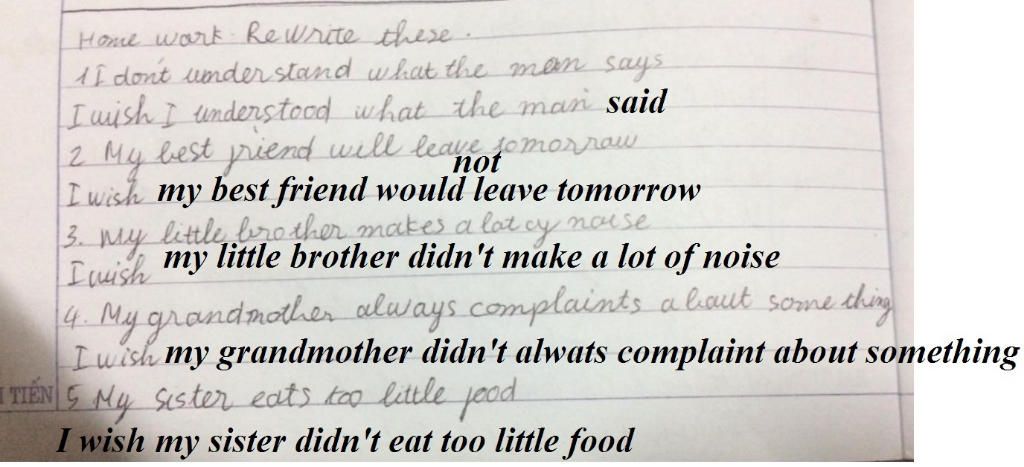 Home work. ReWrite these.
1 I don't understand what the man says
I wish I understood what the man said
2 My best friend will leave tomorrow
not
I wish my best friend would leave tomorrow
3. My little brother makes a lot of noise
I wish my little brother didn't make a lot of noise
4. My grandmother always complaints about something
I wish my grandmother didn't alwats complaint about something
TIẾN 5 My sister eats too little food
I wish my sister didn't eat too little food